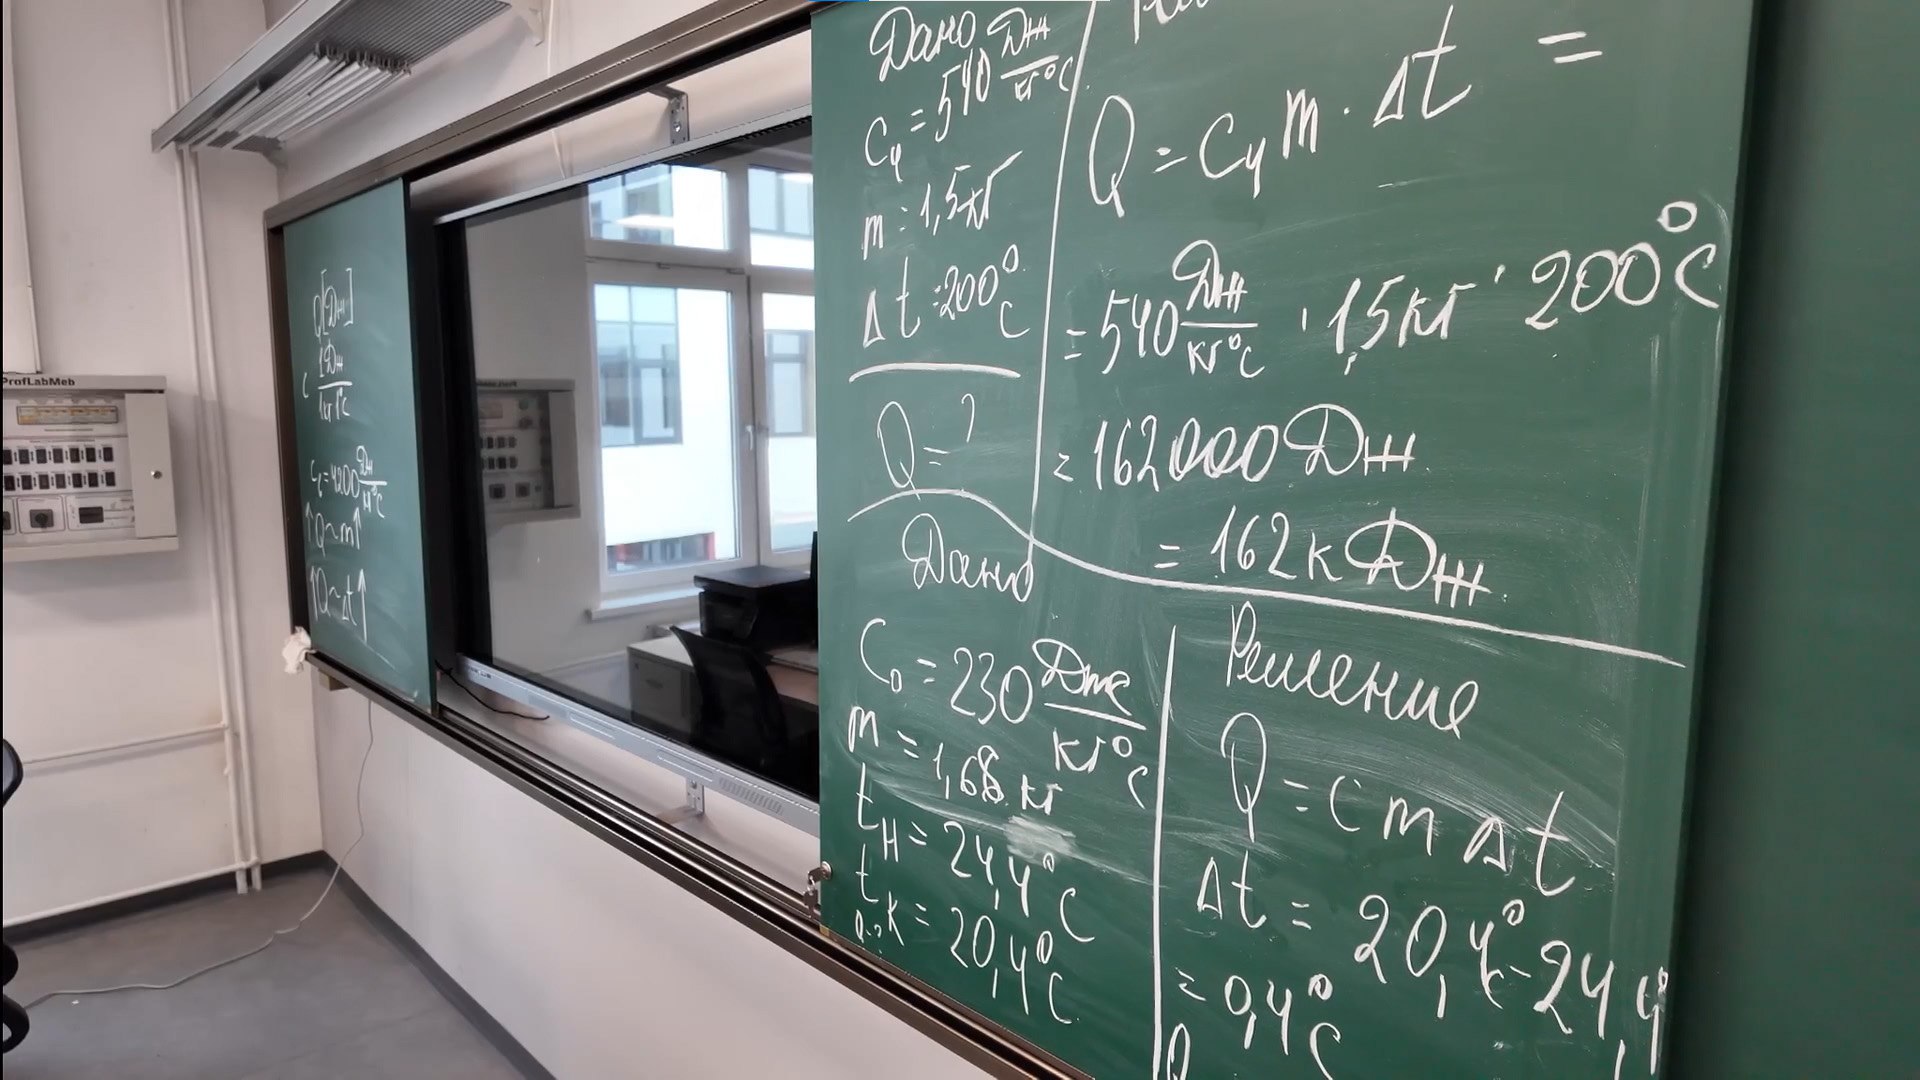 ProfLabMeb
Q[Дж]
c 1Дж/1кг1°C
Cв=4200 Дж/кг°C
↑Q~m↑
↑Q~Δt↑
Дано
Cч = 540 Дж/кг°C
m = 1,5кг
Δt = 200°C
Q = ?
Q = Cч m · Δt =
= 540 Дж/кг°C · 1,5кг · 200°C
= 162000 Дж
= 162 кДж
Дано
C₀ = 230 Дж/кг°C
m = 1,68 кг
tн = 24,4°C
tк = 20,4°C
Q-?
Решение
Q = c m Δt
Δt = 20,4°C - 24,4°
= 0,4°C
Q